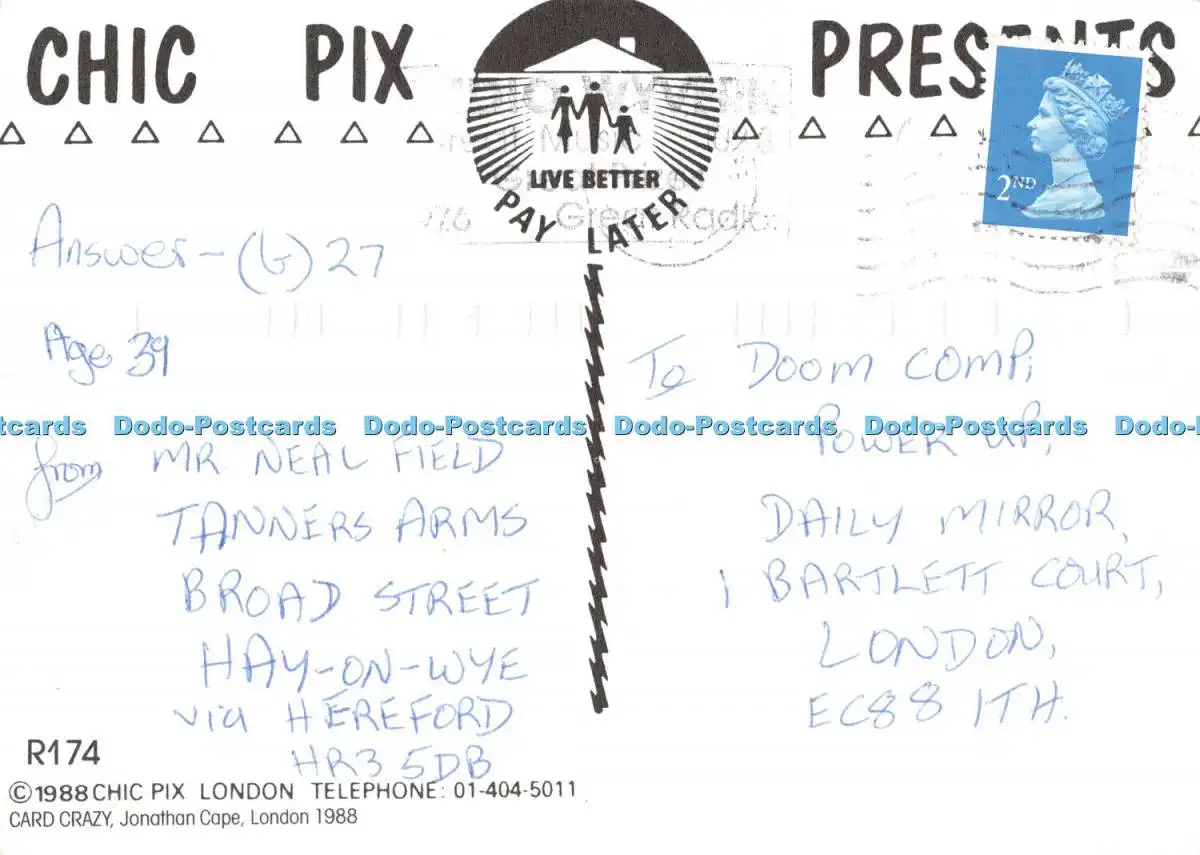 CHIC PIX PRESENTS
LIVE BETTER
PAY LATER
2ND
Great Radio
Answer - (b) 27
Age 39
from MR NEAL FIELD
TANNERS ARMS
BROAD STREET
HAY-ON-WYE
via HEREFORD
HR3 5DB
To DOOM COMP,
POWER UP,
DAILY MIRROR,
1 BARTLETT COURT,
LONDON,
EC88 1TH.
Dodo-Postcards Dodo-Postcards Dodo-Postcards Dodo-Postcards
R174
©1988 CHIC PIX LONDON TELEPHONE: 01-404-5011
CARD CRAZY, Jonathan Cape, London 1988